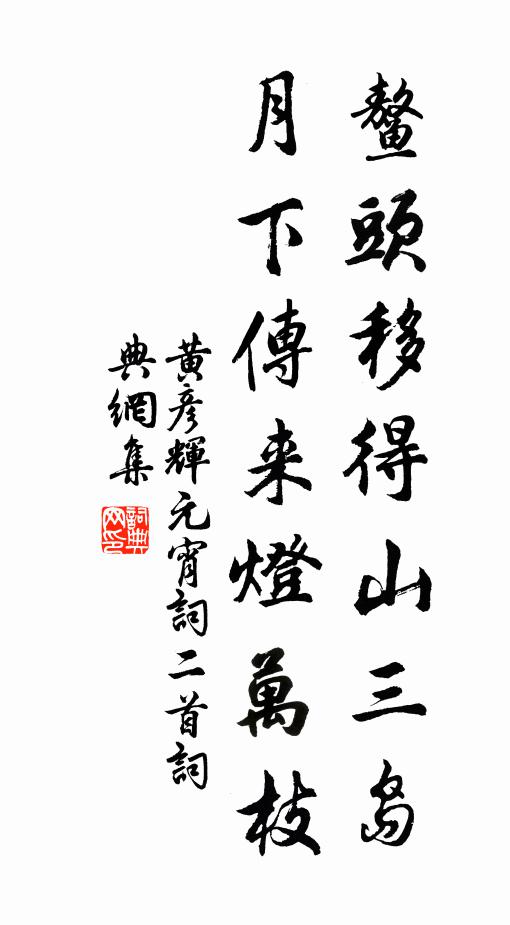 鳌頭移得山三島
月下傳来燈萬枝
黄彦輝元宵詞二首詞
典網集
詞典网印